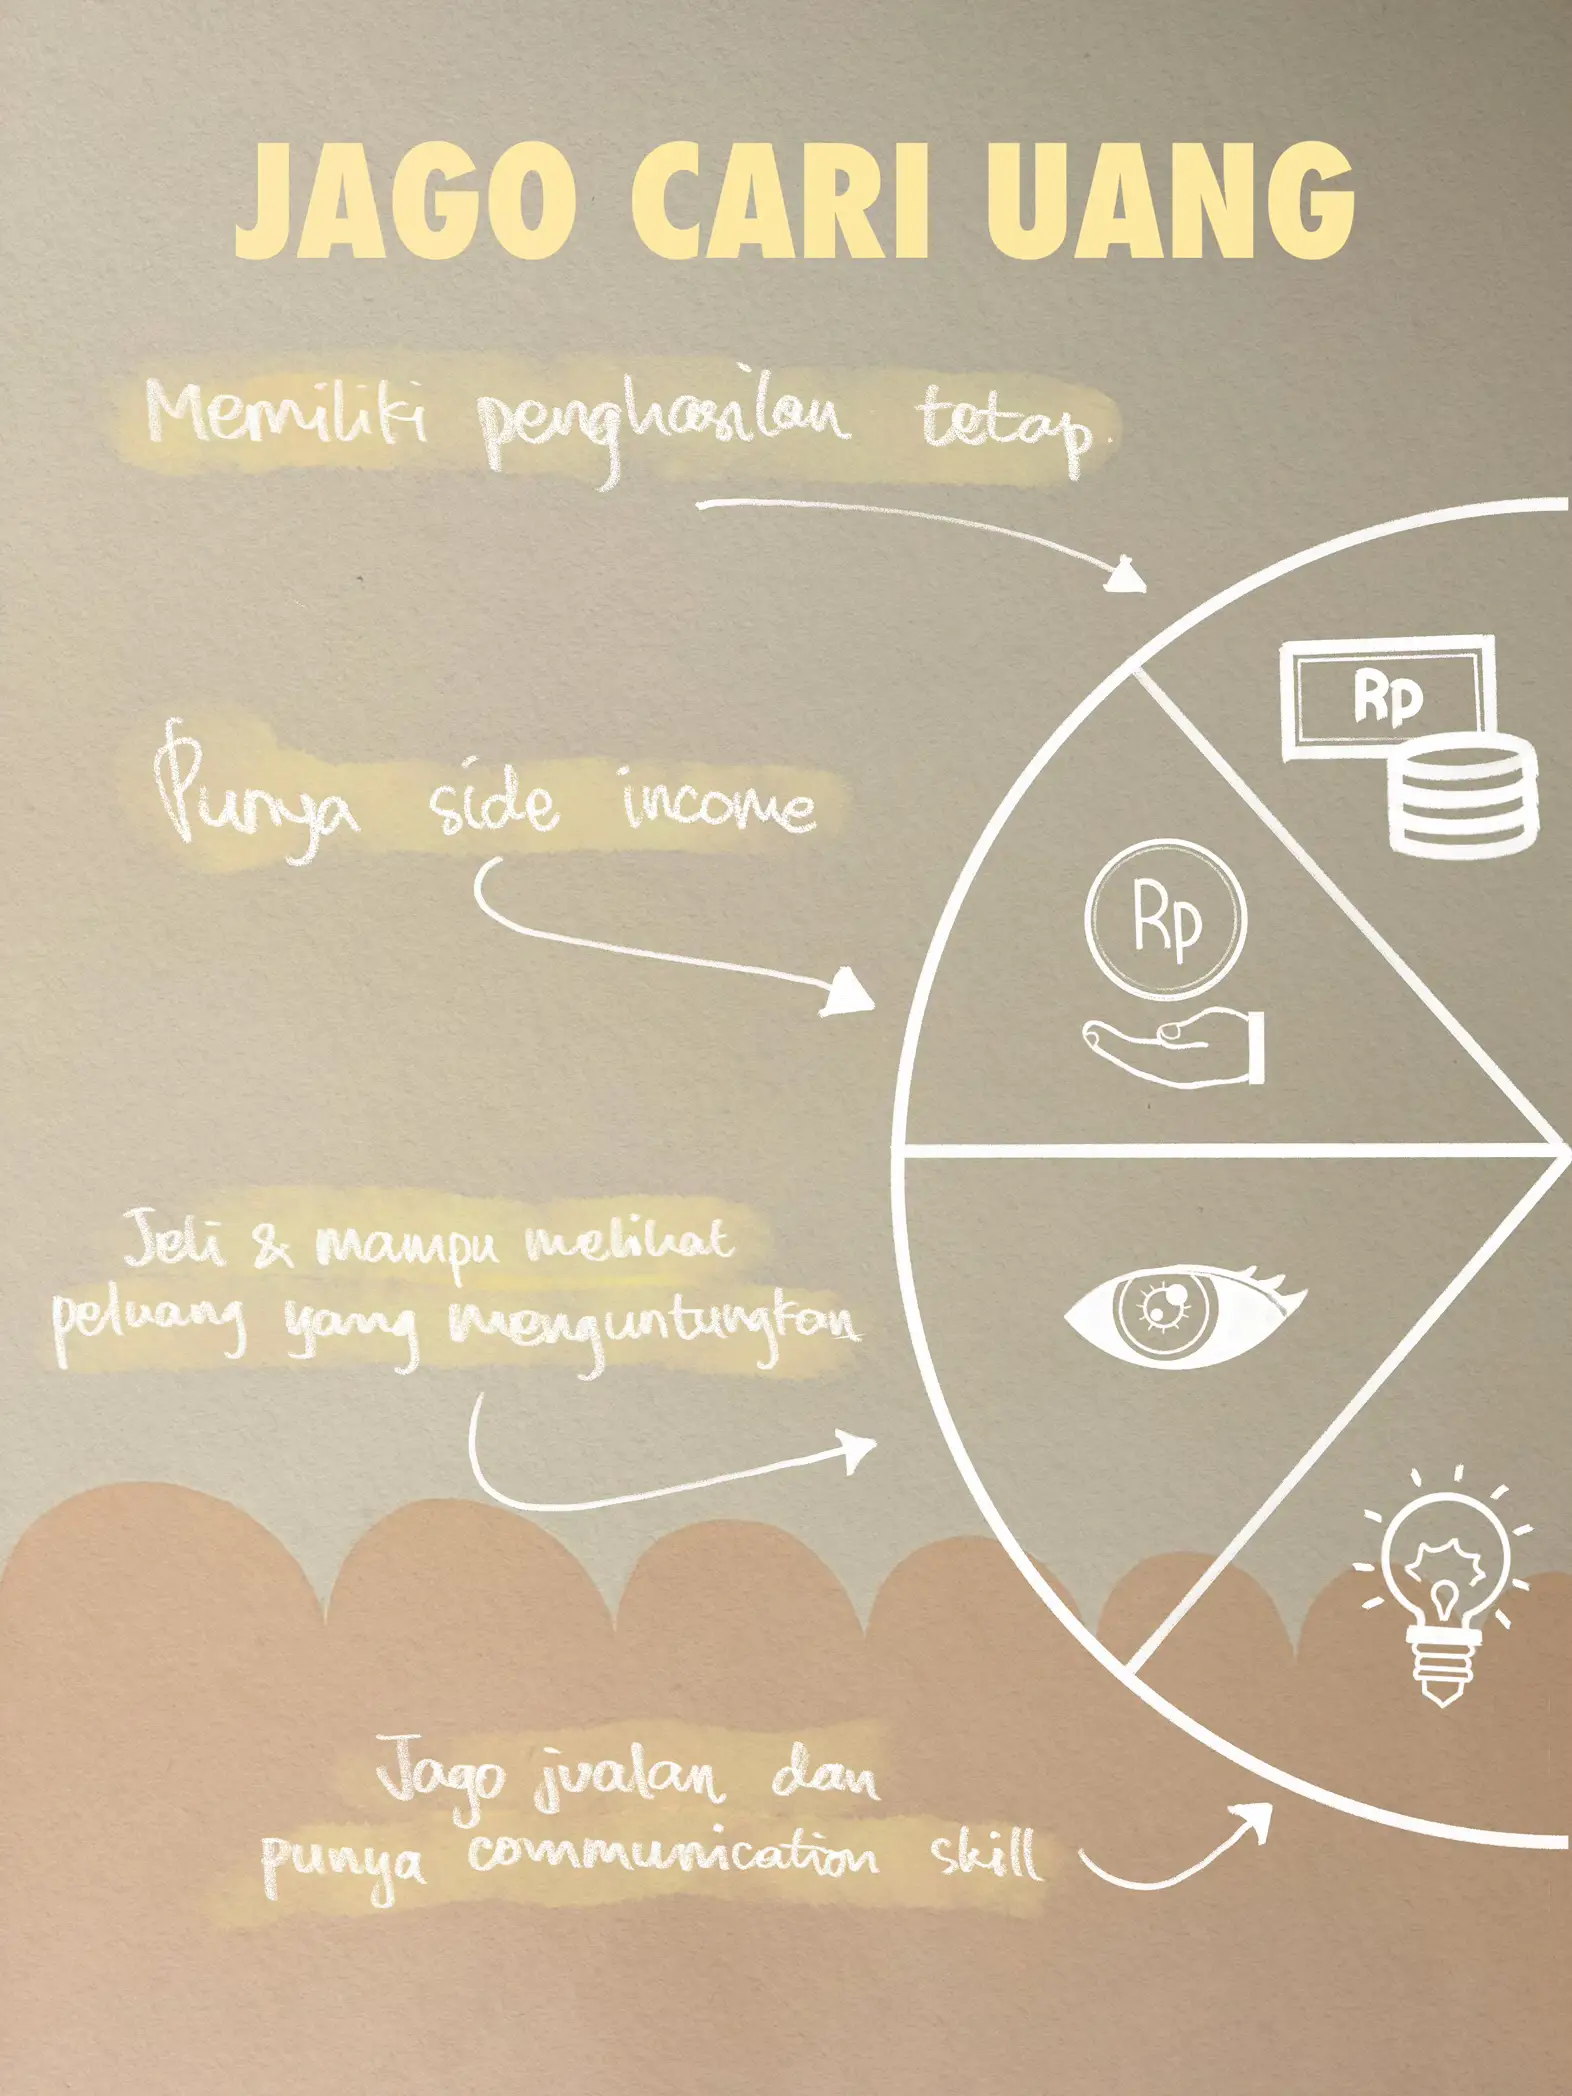 JAGO CARI UANG
Memiliki penghasilan tetap.
Rp
Punya side income
Rp
Jeli & mampu melihat
peluang yang menguntungkan
Jago jualan dan
punya communication skill